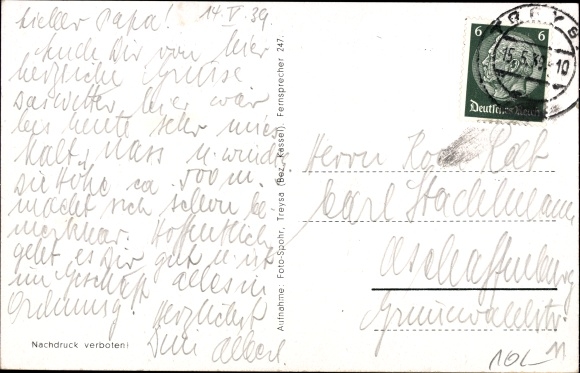 Lieber Papa! 14.V.39.
Auch Dir von hier
herzliche Grüsse
das Wetter hier war
bis heute sehr
kalt, nass u. windig
Die Höhe ca. 500 m.
macht sich schon be
merkbar. Hoffentlich
geht es Dir gut u. ist
im Geschäft alles in
Ordnung! Herzlichst
Dein Albert.
Nachdruck verboten!
Aufnahme: Foto-Spohr, Treysa (Bez. Kassel). Fernsprecher 247.
6 6
Deutsches Reich
15.5.39.-10
Herrn
Carl Stadelmann
Aschaffenburg
Grünewaldstr.